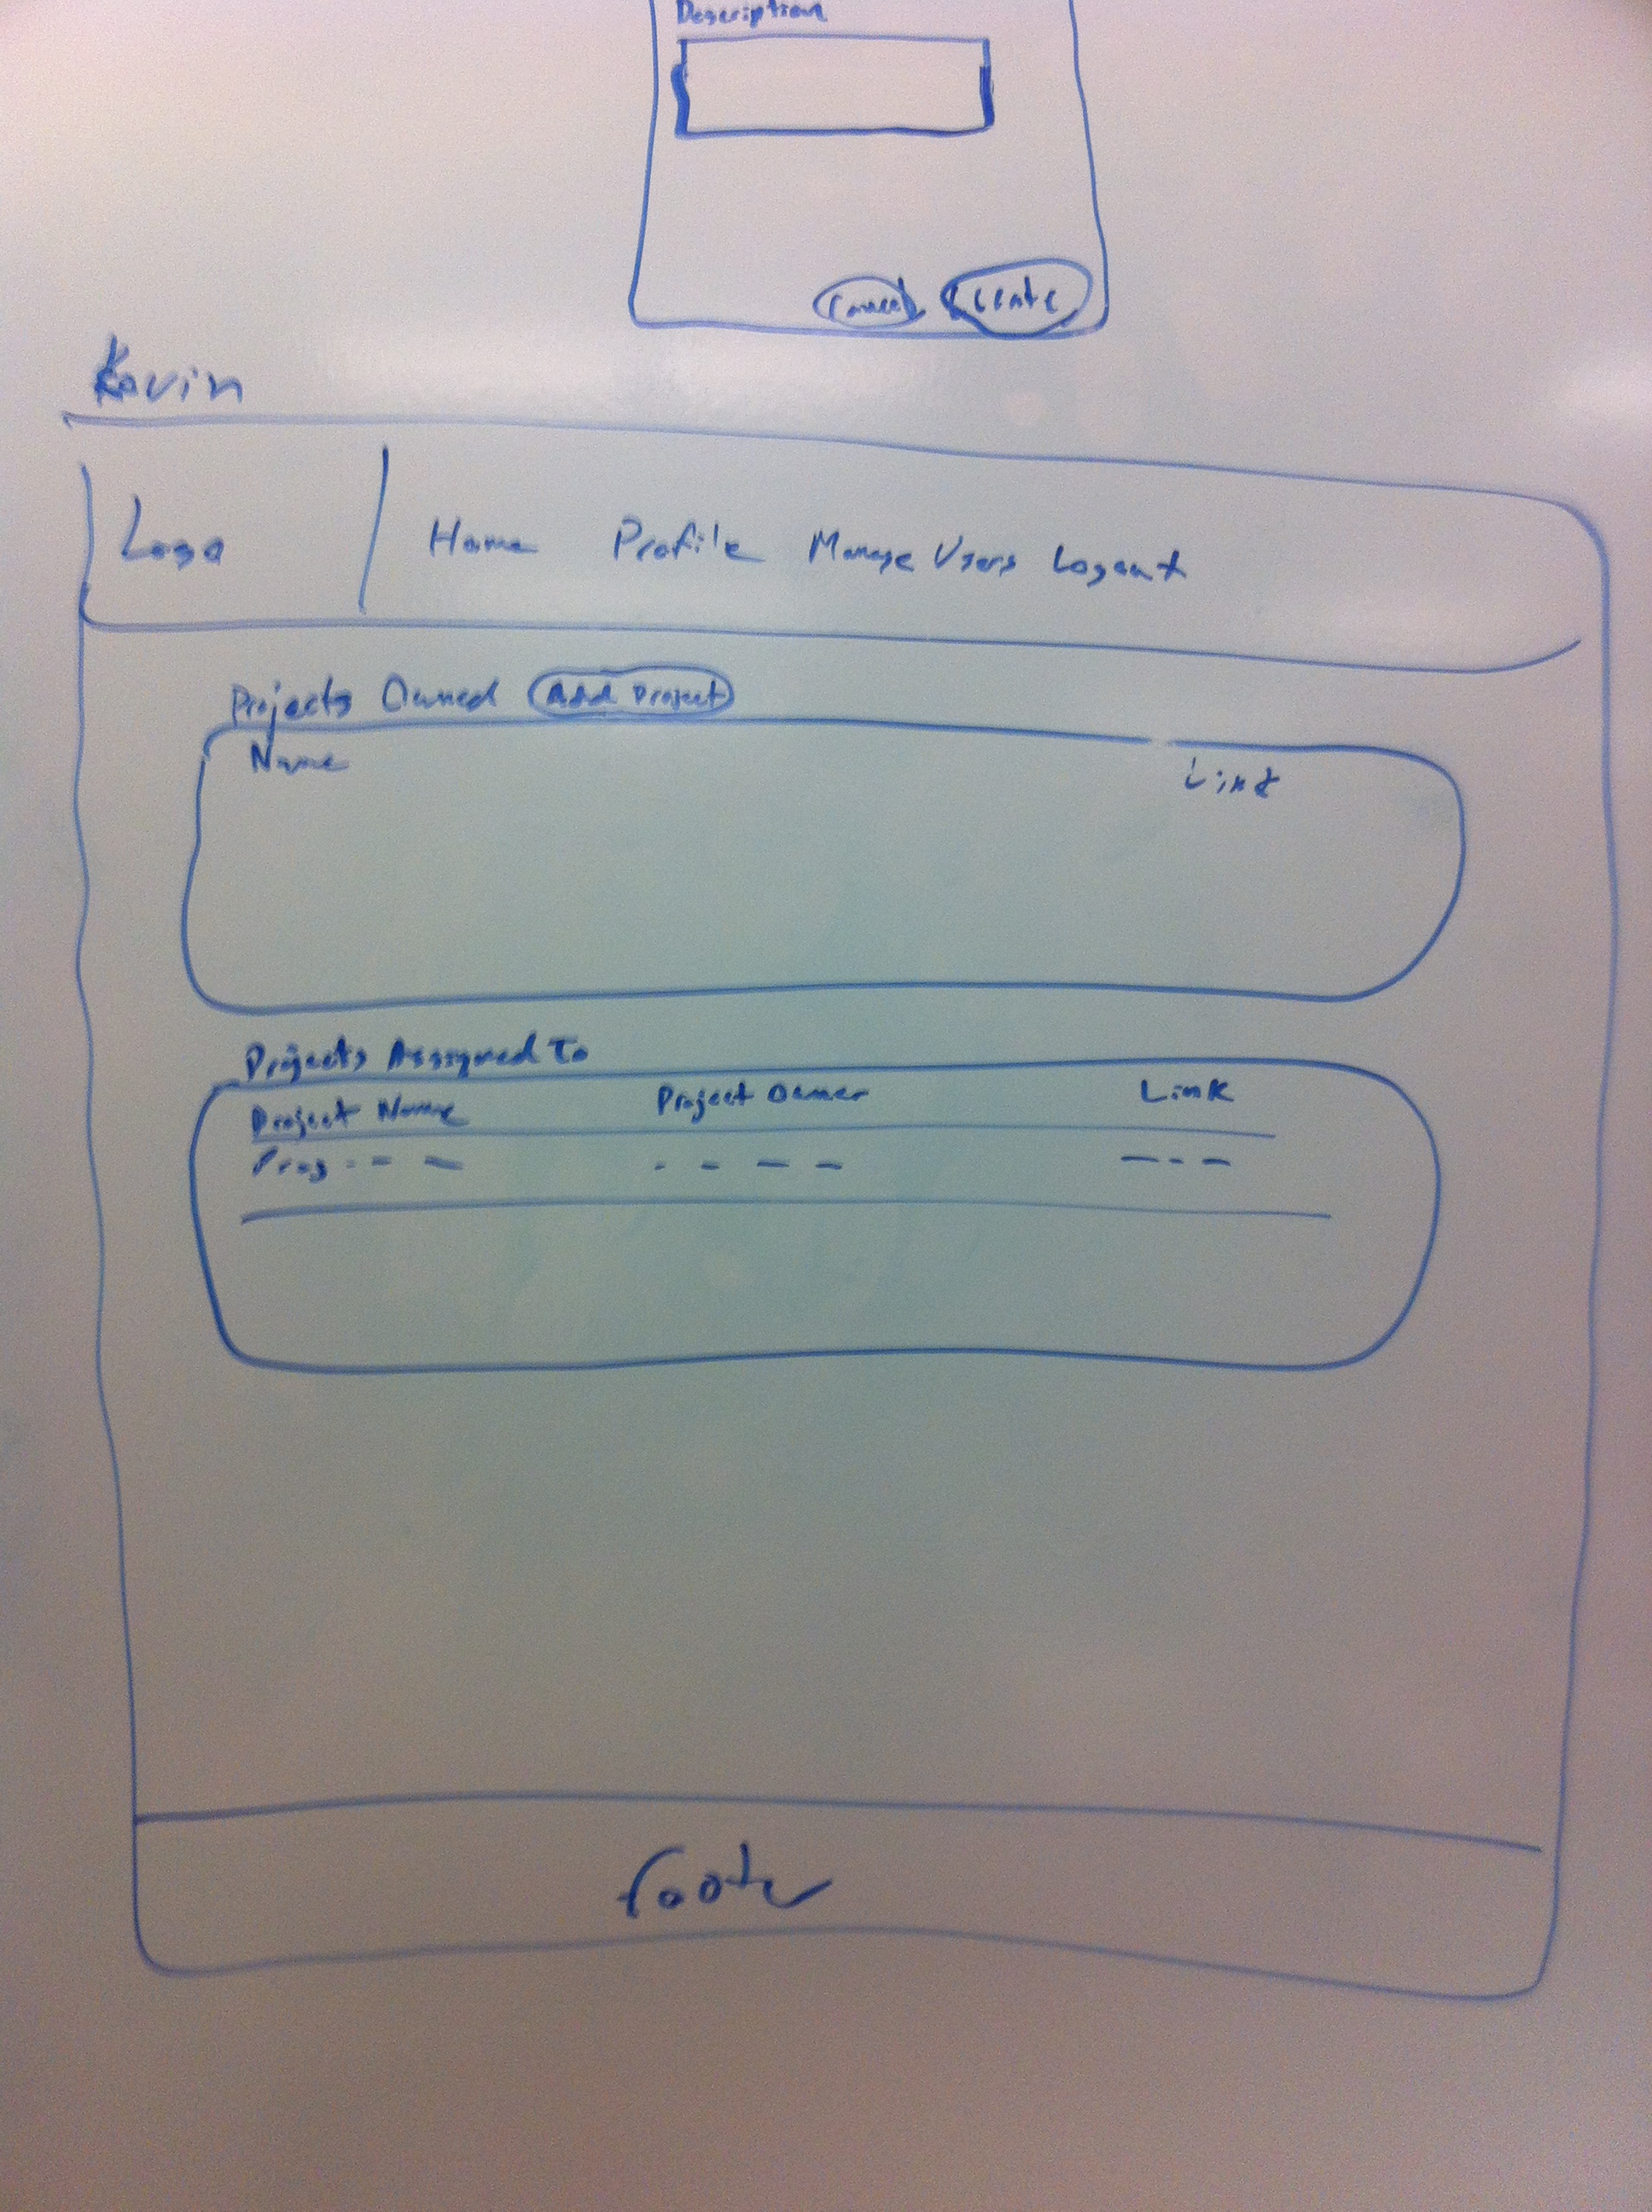 Description
Cancel Create
Kevin
Logo Home Profile Manage Users Logout
Projects Owned Add Project
Name Link
Projects Assigned To
Project Name Project Owner Link
Proj - - - - - - - - - -
footer